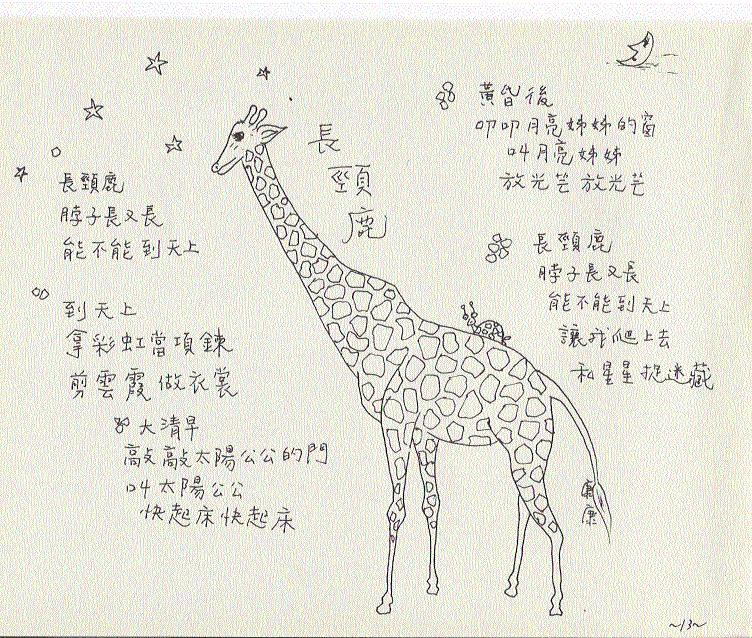 長頸鹿
長頸鹿
脖子長又長
能不能到天上
到天上
拿彩虹當項鍊
剪雲霞做衣裳
大清早
敲敲太陽公公的門
叫太陽公公
快起床快起床
黃昏後
叩叩月亮姊姊的窗
叫月亮姊姊
放光芒放光芒
長頸鹿
脖子長又長
能不能到天上
讓我爬上去
和星星捉迷藏
康
~13~